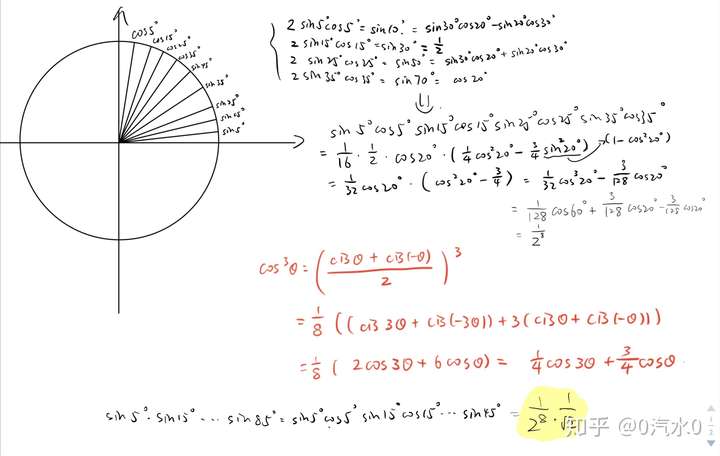 cos5° cos15° cos25° cos35° sin45° sin35° sin25° sin15° sin5°
2 sin5°cos5° = sin10° = sin30°cos20° - sin20°cos30°
2 sin15°cos15° = sin30° = 1/2
2 sin25°cos25° = sin50° = sin30°cos20° + sin20°cos30°
2 sin35°cos35° = sin70° = cos20°
⇓
sin5°cos5° sin15°cos15° sin25°cos25° sin35°cos35°
= 1/16 · 1/2 · cos20° · (1/4 cos²20° - 3/4 sin²20°) → (1-cos²20°)
= 1/32 cos20° · (cos²20° - 3/4) = 1/32 cos³20° - 3/128 cos20°
= 1/128 cos60° + 3/128 cos20° - 3/128 cos20°
= 1/2⁸
cos³θ = ((cisθ + cis(-θ))/2)³
= 1/8 ((cis3θ + cis(-3θ)) + 3(cisθ + cis(-θ)))
= 1/8 (2cos3θ + 6cosθ) = 1/4 cos3θ + 3/4 cosθ.
sin5° · sin15° ··· sin85° = sin5°cos5° sin15°cos15° ··· sin45° = 1/2⁸ · 1/√2
知乎 @0汽水0
1/2